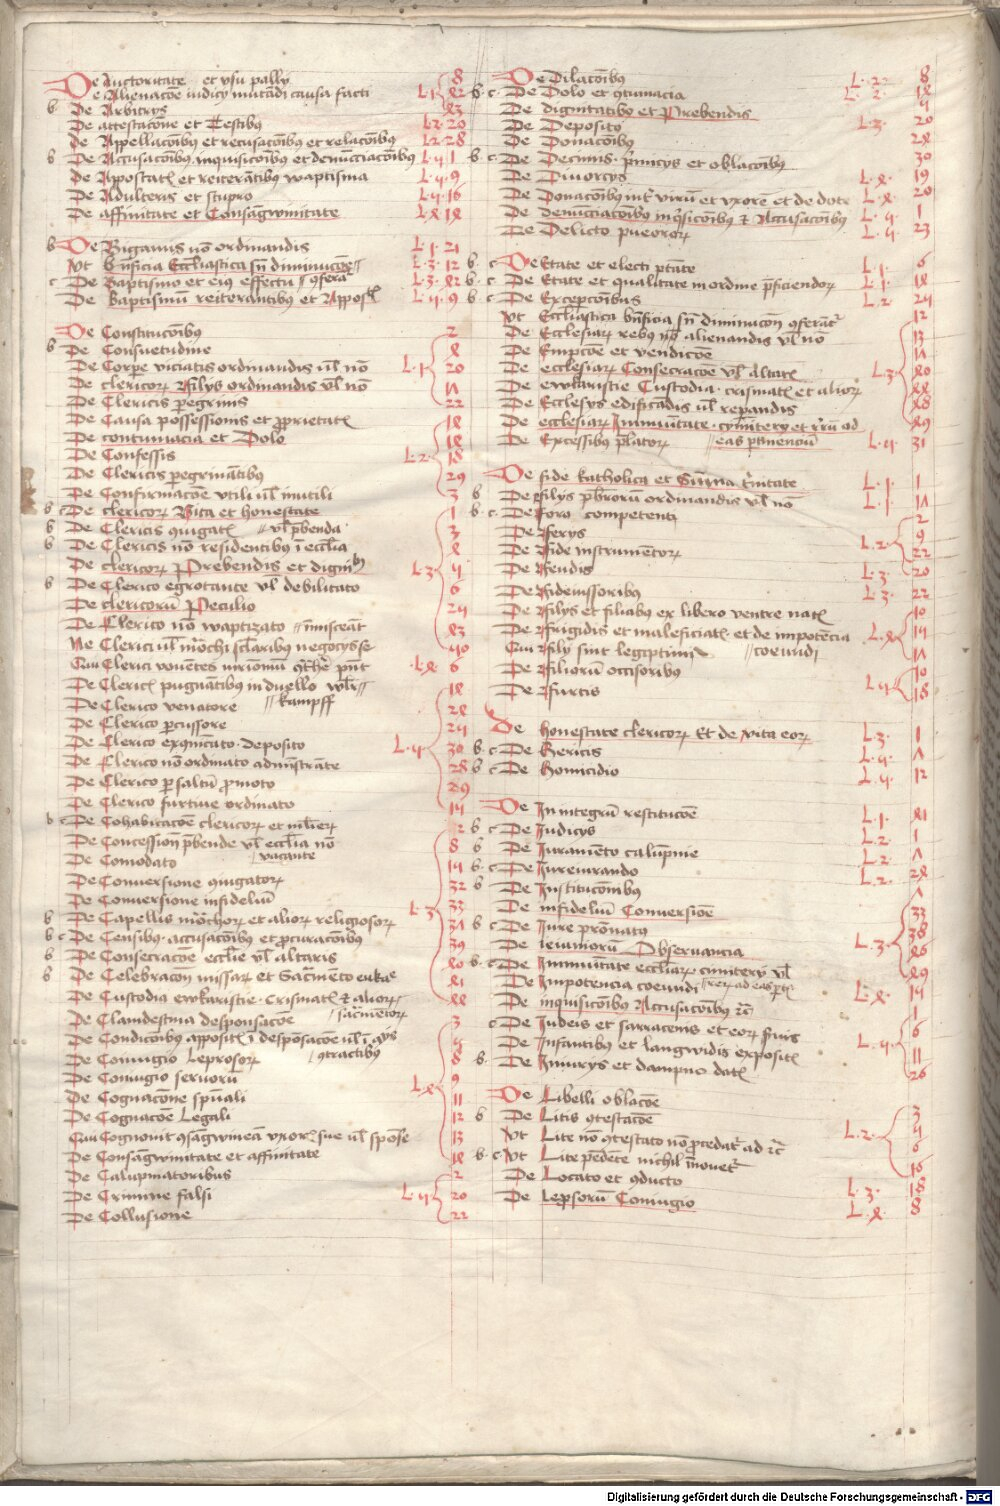 De Auctoritate et vsu pallij 8
De Alienacoe iudicij mutandi causa facti L 1 42
b De Arbitrijs 43
De attestacone et Testibus L 2 20
de Appellacoibus et recusacoibus et relacoibus L 2 28
b De Accusacoibus inquisicoibus et denuncciacoibus L 4 1
de Apostatis et reiterantibus waptisma L 4 9
De Adulteris et stupro L 4 16
De affinitate et Consangwinitate L 4 14
b De Bigamis no ordinandis L 1 21
Vt bnficia Ecclesiastica sn diminucoe L 3 12
c De Baptismo et eius effectu L 3 42
De Baptismu reiterantibus et Appostatis L 4 9
De Constitucoibus 2
b De Consuetudine 4
De Corpe viciatis ordinandis vl no L 1 20
De clericorum filijs ordinandis vl no 17
De Clericis pegrinis 22
De Causa possessionis et proprietatis 12
De contumacia et Dolo 14
De Confessis L 2 18
De Clericis pegrinatibus 29
De Confirmacoe vtili vl inutili 3
b c De clericorum Vita et honestate 1
b De Clericis coniugatis 3
b De Clericis no residentibus i ecclia vl pbenda 4
De clericorum Prebendis et dignitatibus L 3 4
b De Clerico egrotante vl debilitato 6
De clericoru Peculio 24
De Clerico no waptizato 43
Ne Clerici vl mochi sclaribus negocijs se inmisceat 40
Qui Clerici vouentes mrimoniu cthe pnt L 4 6
De Clericis pugnatibus in duello kampff 14
De Clerico venatore 24
De Clerico pcussore 24
De Clerico excomicato deposito L 4 30
De Clerico no ordinato administrate 28
De Clerico p saltu pmoto 29
De Clerico furtiue ordinato 14
b c De Cohabitacoe clericorum et mlierum 2
De Concession pbende vl ecclia no vacante 8
De Comodato 14
De Conuersione coniugatorum 32
De Conuersione infideliu 33
b De Capellis mochorum et aliorum religiosorum L 3 37
b c De Censibus accusacoibus et procuracoibus 39
b De Consecracoe ecclie vl altaris 40
b De Celebracon missarum et Sacmento eukae 41
De Custodia ewkaristie Crismatis et aliorum sacmentorum 44
De Clandestina desponsacoe 3
De Condicoibus appositis i desposacoe vl i alijs contractibus 4
De Coniugio Leprosorum 8
De Coniugio seruoru L 4 9
De Cognacone spuali 11
De Cognacoe Legali 12
Qui Cognouit consagwinea vxoris sue vl sponse 13
De Consangwinitate et affinitate 14
De Calupmatoribus 2
De Crimine falsi L 4 20
De Collusione 22
De Dilacoibus L 2 8
b c De Dolo et contumacia L 2 14
De dignitatibus et Prebendis 4
De Deposito L 3 20
De Donacoibus 24
b c De Decimis primicijs et oblacoibus 30
De Diuorcijs L 4 19
De Donacoibus int viru et vxore et de dote L 4 20
De denuncciacoibus inquisicoibus et Accusacoibus L 4 1
De Delicto puerorum L 4 23
b c De Etate et electi ptate L 1 6
b c De Etate et qualitate in ordine pficiendorum L 1 14
b c De Excepcoibus L 2 24
Vt Ecclesiastica bnficia sn diminucon conferat 12
De Ecclesiarum rebus alienandis vl no 13
De Empcoe et vendicoe 17
De ecclesiarum Consecracoe vl Altaris L 3 40
De ewkaristie Custodia crismatis et aliorum 44
De Ecclesijs edificadis vl repandis 48
De ecclesiarum Inmunitate cymitery et reru ad eas ptinenciu 49
De Excessibus platorum L 4 31
De fide katholica et Summa trinitate L 1 1
b De filijs pbroru ordinandis vl no L 1 17
b c De Foro competenti 2
De Ferijs 9
De Fide instrumentorum L 2 22
De Feudis L 3 20
De Fideiussoribus L 3 22
De Filijs et filiabus ex libero ventre natis 10
De Frigidis et maleficiatis et de impotecia coeundi L 4 14
Qui Filij sint legiptimi 17
De Filiorum occisoribus 10
De Furtis L 4 18
De honestate clericorum Et de vita eorum L 3 1
b c De Hereticis L 4 7
b c De Homicidio L 4 12
De In integru restitucoe L 1 41
b c De Iudicijs L 2 1
b De Iuramento calupnie L 2 7
b c De Iureiurando L 2 24
b De Institucoibus 7
De infideliu Conuersioe 33
b c De Iure pronatus 38
De Ieiuniorum Obseruancia L 3 46
b c De Inmunitate eccliarum cimitery vl rerum ad eas pti 49
De Impotencia coeundi L 4 14
De inquisicoibus Accusacoibus etc 1
c De Iudeis et sarracenis et eorum seruis 6
De Infantibus et langwidis expositis L 4 11
b De Iniurijs et dampno datis 26
De Libelli oblacoe 3
b De Litis contestacoe 4
Vt Lite no contestato no procedat ad etc L 2 6
b c Vt Lite pedete nichil inouet 16
De Locato et conducto L 3 18
De leprosoru Coniugio L 4 8
Digitalisierung gefördert durch die Deutsche Forschungsgemeinschaft - DFG